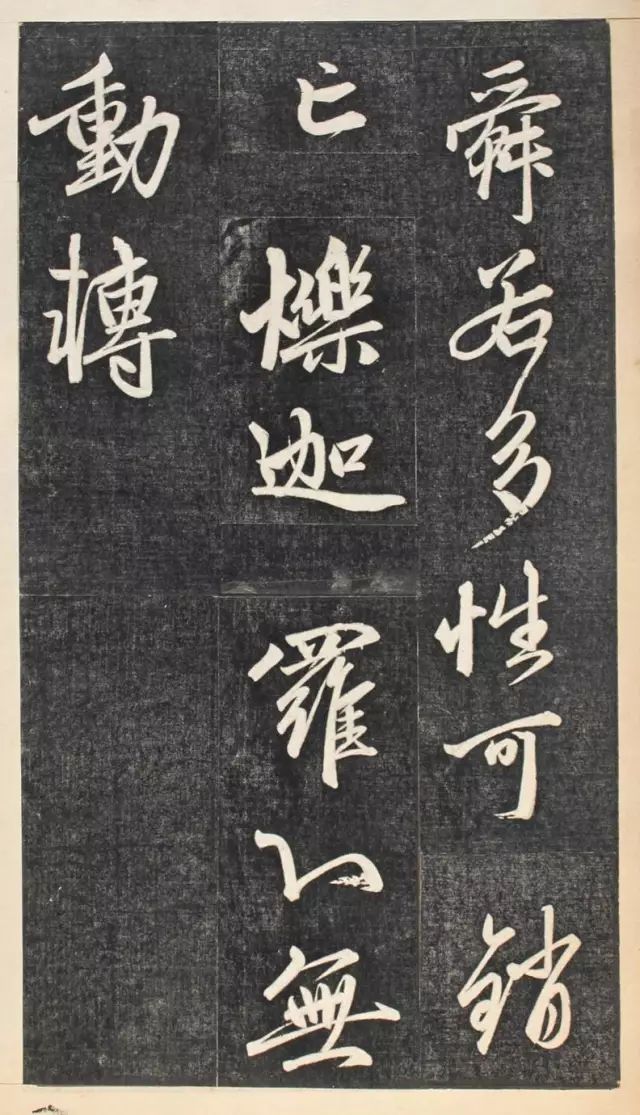 舜若多性可銷
亡櫟迦羅心無
動轉